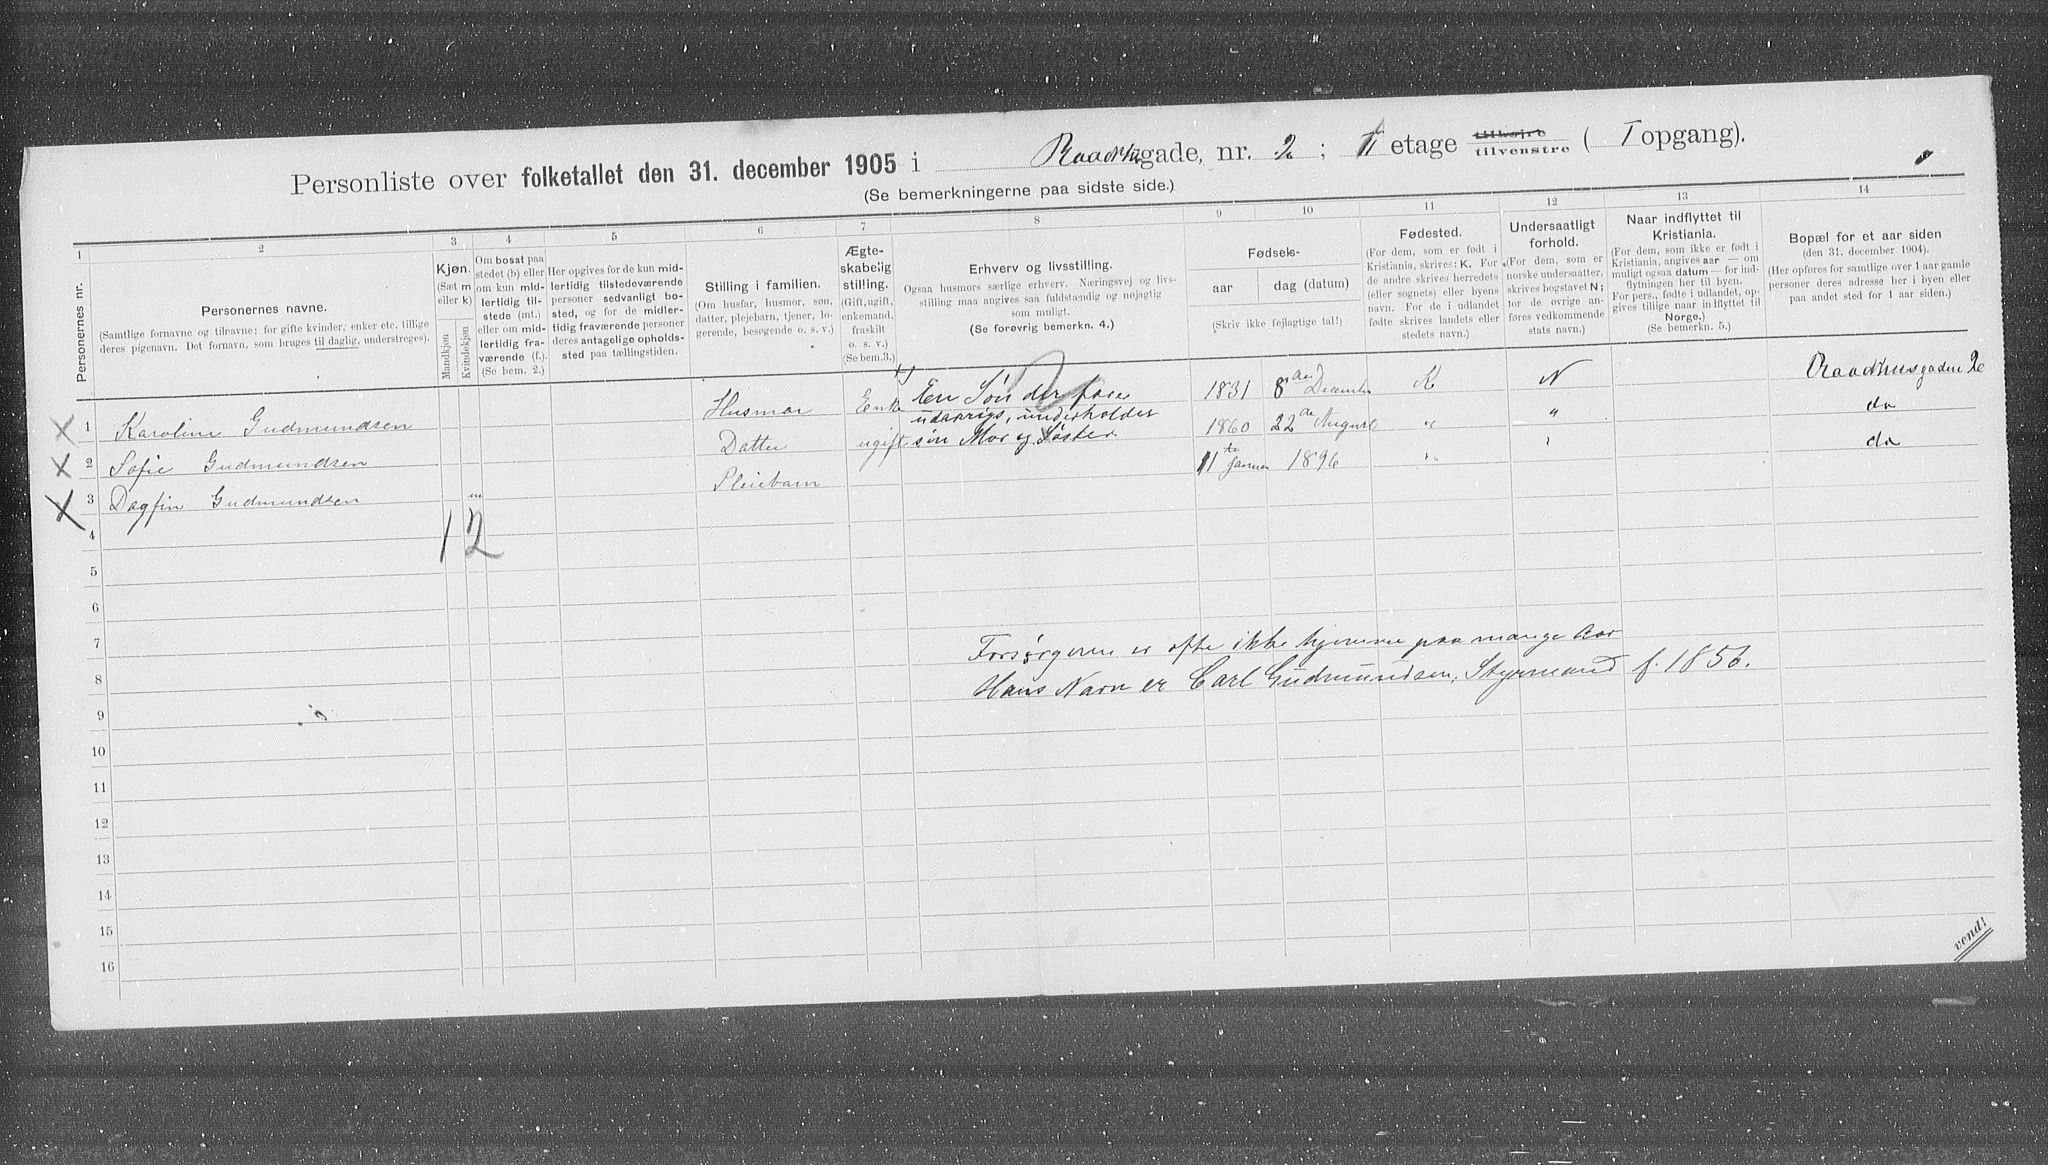 Personliste over folketallet den 31. december 1905 i Raadhusgade, nr. 2; II etage tilhøjre tilvenstre ( I opgang).
(Se bemerkningerne paa sidste side.)
1 2 3 4 5 6 7 8 9 10 11 12 13 14
Personernes nr.
Personernes navne.
(Samtlige fornavne og tilnavne; for gifte kvinder, enker etc. tillige
deres pigenavn. Det fornavn, som bruges til daglig, understreges).
Kjøn.
(Sæt m
eller k)
Mandkjøn
Kvindekjøn
Om bosat paa
stedet (b) eller
om kun mid-
lertidig til-
stede (mt.)
eller om mid-
lertidig fra-
værende (f.).
(Se bem. 2.)
Her opgives for de kun mid-
lertidig tilstedeværende
personer sedvanligt bo-
sted, og for de midler-
tidig fraværende personer
deres antagelige opholds-
sted paa tællingstiden.
Stilling i familien.
(Om husfar, husmor, søn,
datter, plejebarn, tjener, lo-
gerende, besøgende o. s. v.)
Ægte-
skabelig
stilling.
(Gift, ugift,
enkemand,
fraskilt
o. s. v.)
(Se bem.3.)
Erhverv og livsstilling.
Ogsaa husmors særlige erhverv. Næringsvej og livs-
stilling maa angives saa fuldstændig og nøjagtig
som muligt.
(Se forøvrig bemerkn. 4.)
Fødsels-
aar dag (datum)
(Skriv ikke fejlagtige tal!)
Fødested.
(For dem, som er født i
Kristiania, skrives: K. For
de andre skrives herredets
(eller sognets) eller byens
navn. For de i udlandet
fødte skrives landets eller
stedets navn.)
Undersaatligt
forhold.
(For dem, som er
norske undersaatter,
skrives bogstavet N;
for de øvrige an-
føres vedkommende
stats navn.)
Naar indflyttet til
Kristiania.
(For dem, som ikke er født i
Kristiania, angives aar — om
muligt ogsaa datum — for ind-
flytningen her til byen.
For pers., fødte i udlandet, op-
gives tillige naar indflyttet til
Norge.)
(Se bemerkn. 5.)
Bopæl for et aar siden
(den 31. december 1904).
(Her opføres for samtlige over 1 aar gamle
personer deres adresse her i byen eller
paa andet sted for 1 aar siden.)
X 1 Karoline Gudmundsen Husmor Enke 1) En Søn der fare 1831 8de December K N Raadhusgaden 2
udaarigs, underholder
X 2 Sofie Gudmundsen Datter ugift sin Mor og Søster 1860 22de August " " do
X 3 Dagfin Gudmundsen m Pleiebarn 11te Januar 1896 " " do
4 1 2
5
6
7 Forsørgeren er ofte ikke hjemme paa mange Aar
8 Hans Navn er Carl Gudmundsen, Styrmand f. 1856.
9
10
11
12
13
14
15
16
vend!